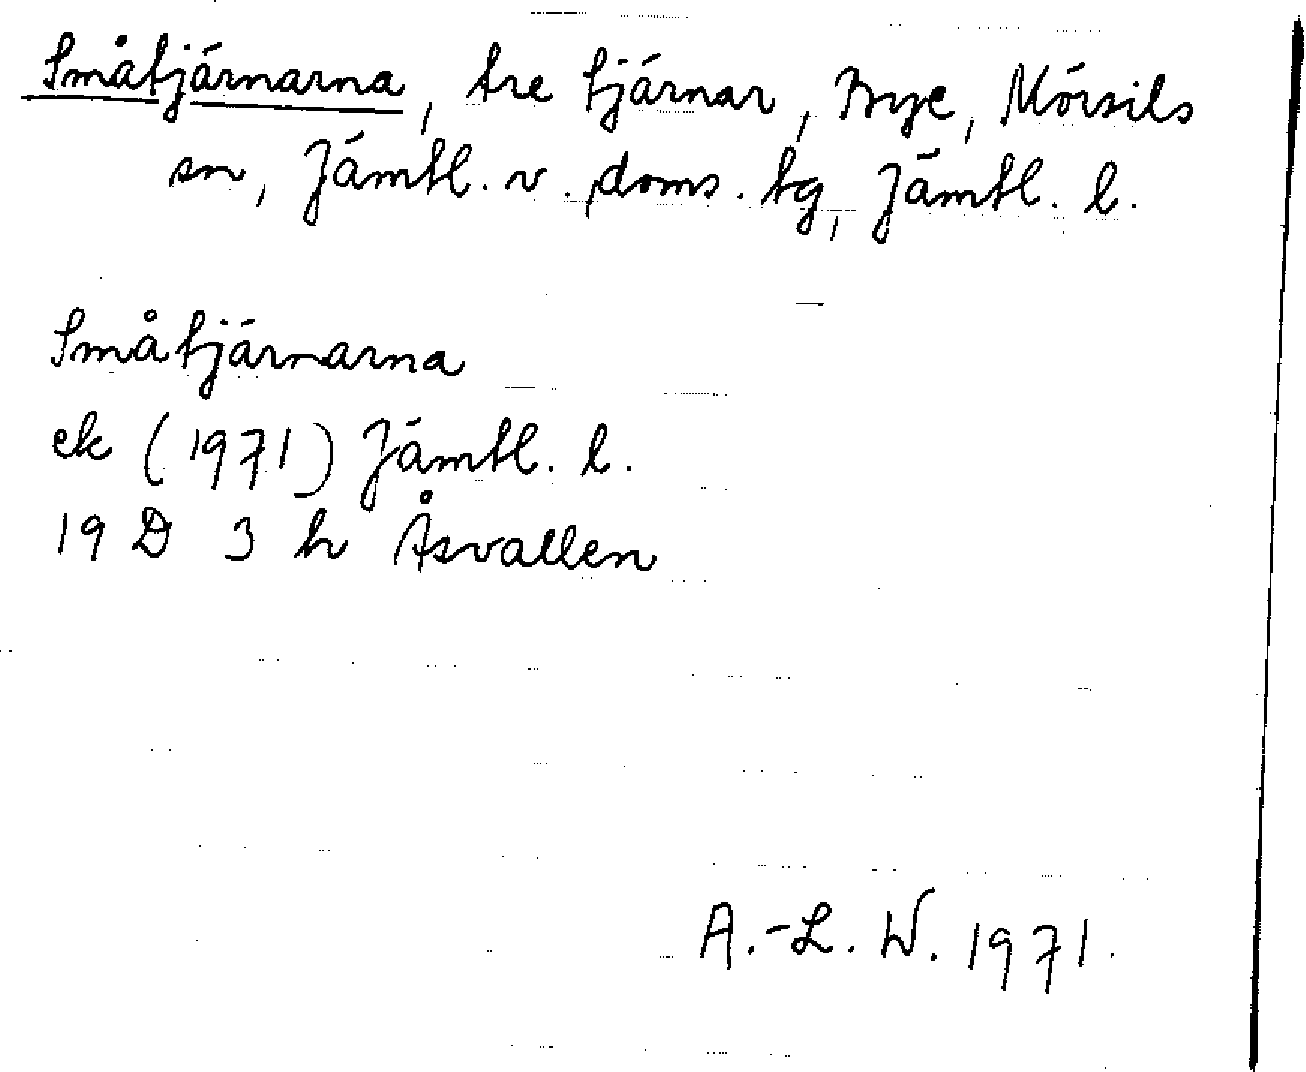 Småtjärnarna, tre tjärnar, Bye, Mörsils
sn, Jämtl. v. doms. tg, Jämtl. l.
Småtjärnarna
ek (1971) Jämtl. l.
19 D 3 h Åsvallen
A.-L. W. 1971.